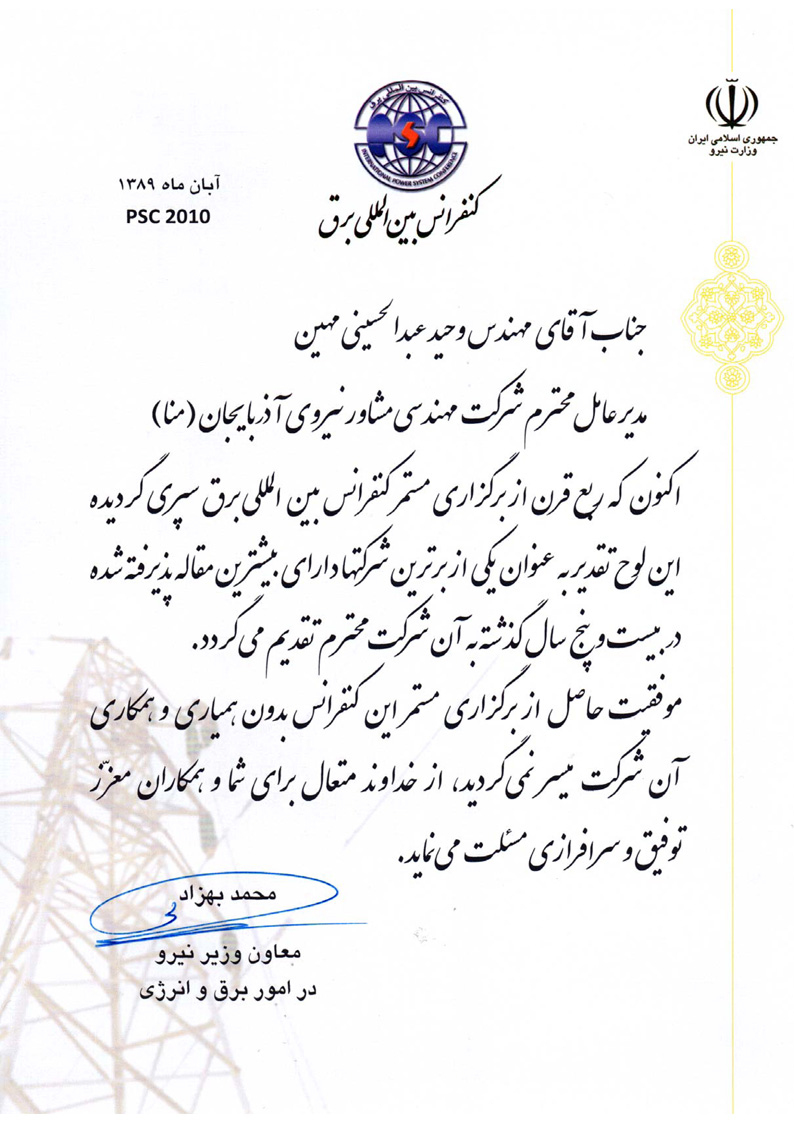 جمهوری اسلامی ایران
وزارت نیرو
کنفرانس بین المللی برق
PSC
INTERNATIONAL POWER SYSTEM CONFERENCE
کنفرانس بین المللی برق
آبان ماه ۱۳۸۹
PSC 2010
جناب آقای مهندس وحید عبدالحسینی مهین
مدیرعامل محترم شرکت مهندسی مشاور نیروی آذربایجان (منا)
اکنون که ربع قرن از برگزاری مستمر کنفرانس بین المللی برق سپری گردیده
این لوح تقدیر به عنوان یکی از برترین شرکتها دارای بیشترین مقاله پذیرفته شده
در بیست و پنج سال گذشته به آن شرکت محترم تقدیم می گردد.
موفقیت حاصل از برگزاری مستمر این کنفرانس بدون همیاری و همکاری
آن شرکت میسر نمی گردید، از خداوند متعال برای شما و همکاران معزّز
توفیق و سرافرازی مسئلت می نماید.
محمد بهزاد
معاون وزیر نیرو
در امور برق و انرژی